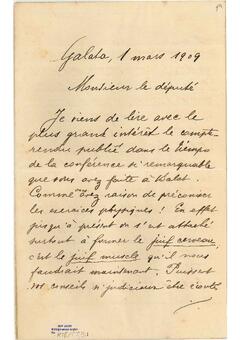 Galata, 1 mars 1909
Monsieur le député
Je viens de lire avec le
plus grand intérêt le compte-
rendu publié dans le
de la conférence si remarquable
que vous avez faite à Balat.
Comme vous avez raison de préconiser
les exercices physiques ! En effet
jusqu'à présent on s'est attaché
surtout à former le juif cerveau
c'est le juif muscle qu'il nous
faudrait maintenant. Puissent
vos conseils si judicieux être écoutés